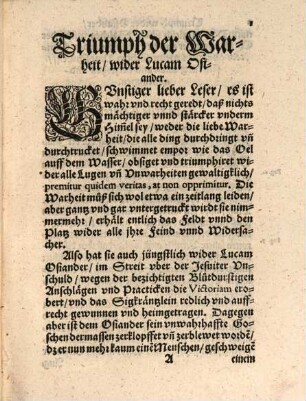 Triumph der War-
heit/ wider Lucam Osi-
ander.
GVnstiger lieber Leser/ es ist
wahr vnd recht geredt/ daß nichts
mächtiger vnnd stärcker vnderm
Him̃el sey/ weder die liebe War-
heit/ die alle ding durchdingt vñ
durchtrucket/ schwimmet empor wie das Oel
auff dem Wasser/ obsiget vnd triumphiret wi-
der alle Lugen vñ Vnwarheiten gewaltigklich/
premitur quidem veritas, at non opprimitur. Die
Warheit můß sich wol etwa ein zeitlang leiden/
aber gantz vnd gar vntergetruckt wirdt sie nim-
mermehr/ erhält entlich das Feldt vnnd den
Platz wider alle jhre Feind vnnd Widersa-
cher.
Also hat sie auch jüngstlich wider Lucam
Osiander/ im Streit vber der Jesuiter Vn-
schuld/ wegen der bezichtigten Blůtdurstigen
Anschlägen vnd Practicken die Victoriam ero-
bert/ vnd das Sigkräntzlein redlich vnd auff-
recht gewunnen vnd heimgetragen. Dagegen
aber ist dem Osiander sein vnwahrhaffte Go-
schen dermassen zerklopffet vñ zerblewet wordẽ/
dz er nun mehr kaum einẽ Menschen/ geschweigẽ
A einem